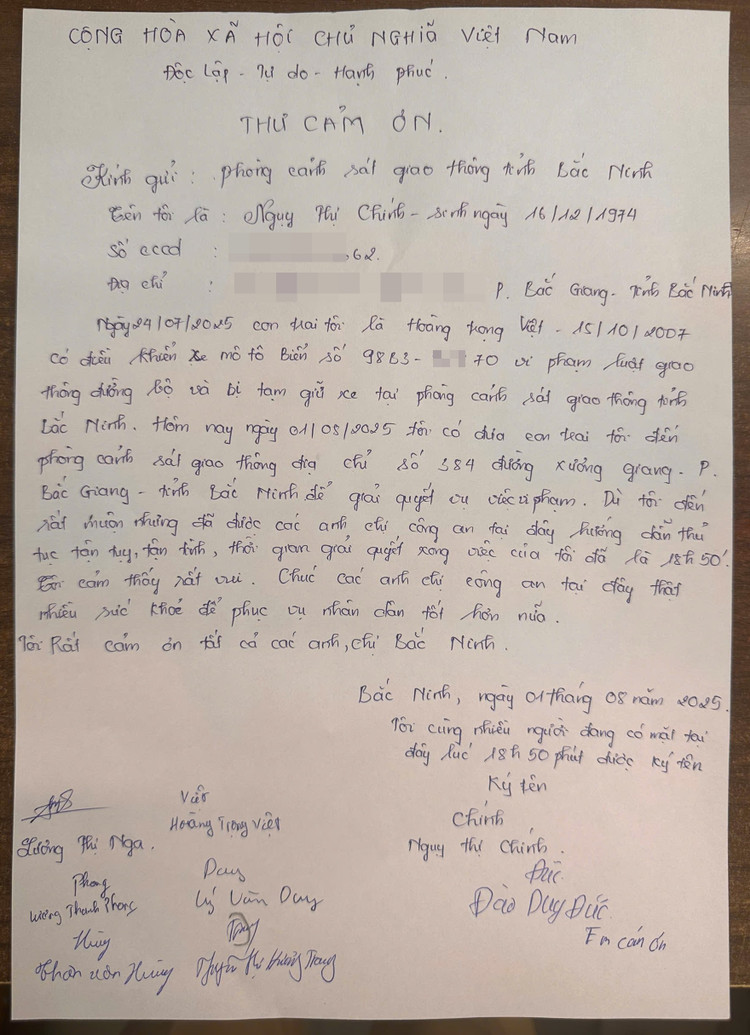 CỘNG HÒA XÃ HỘI CHỦ NGHĨA Việt Nam
Độc Lập - Tự do - Hạnh phúc.
THƯ CẢM ƠN.
Kính gửi: phòng cảnh sát giao thông tỉnh Bắc Ninh
Tên tôi là: Ngụy Thị Chính - sinh ngày 16/12/1974
Số cccd : 62.
Địa chỉ : P. Bắc Giang - Tỉnh Bắc Ninh
Ngày 24/07/2025 con trai tôi là Hoàng trọng Việt - 15/10/2007
có điều khiển xe mô tô Biển số 98B3- 70 vi phạm luật giao
thông đường bộ và bị tạm giữ xe tại phòng cảnh sát giao thông tỉnh
Bắc Ninh. Hôm nay ngày 01/08/2025 tôi có đưa con trai tôi đến
phòng cảnh sát giao thông địa chỉ số 384 đường xương giang. P.
Bắc Giang - tỉnh Bắc Ninh để giải quyết vụ việc vi phạm. Dù tôi đến
rất muộn nhưng đã được các anh chị công an tại đây hướng dẫn thủ
tục tận tụy, tận tình, thời gian giải quyết xong việc của tôi đã là 18h50'
Tôi cảm thấy rất vui. Chúc các anh chị công an tại đây thật
nhiều sức khoẻ để phục vụ nhân dân tốt hơn nữa.
Tôi Rất cảm ơn tất cả các anh, chị Bắc Ninh.
Bắc Ninh, ngày 01 tháng 08 năm 2025.
Tôi cùng nhiều người đang có mặt tại
đây lúc 18h50 phút được ký tên
Ký tên
Chính
Ngụy thị Chính.
Đức
Đào Duy Đức
Em cán ơn
Lương Thị Nga.
Việt
Hoàng Trọng Việt
Phong
Lương Thanh Phong
Duy
Lý Văn Duy
Hùng
Thân Văn Hùng
Trang
Thị Hương Trang